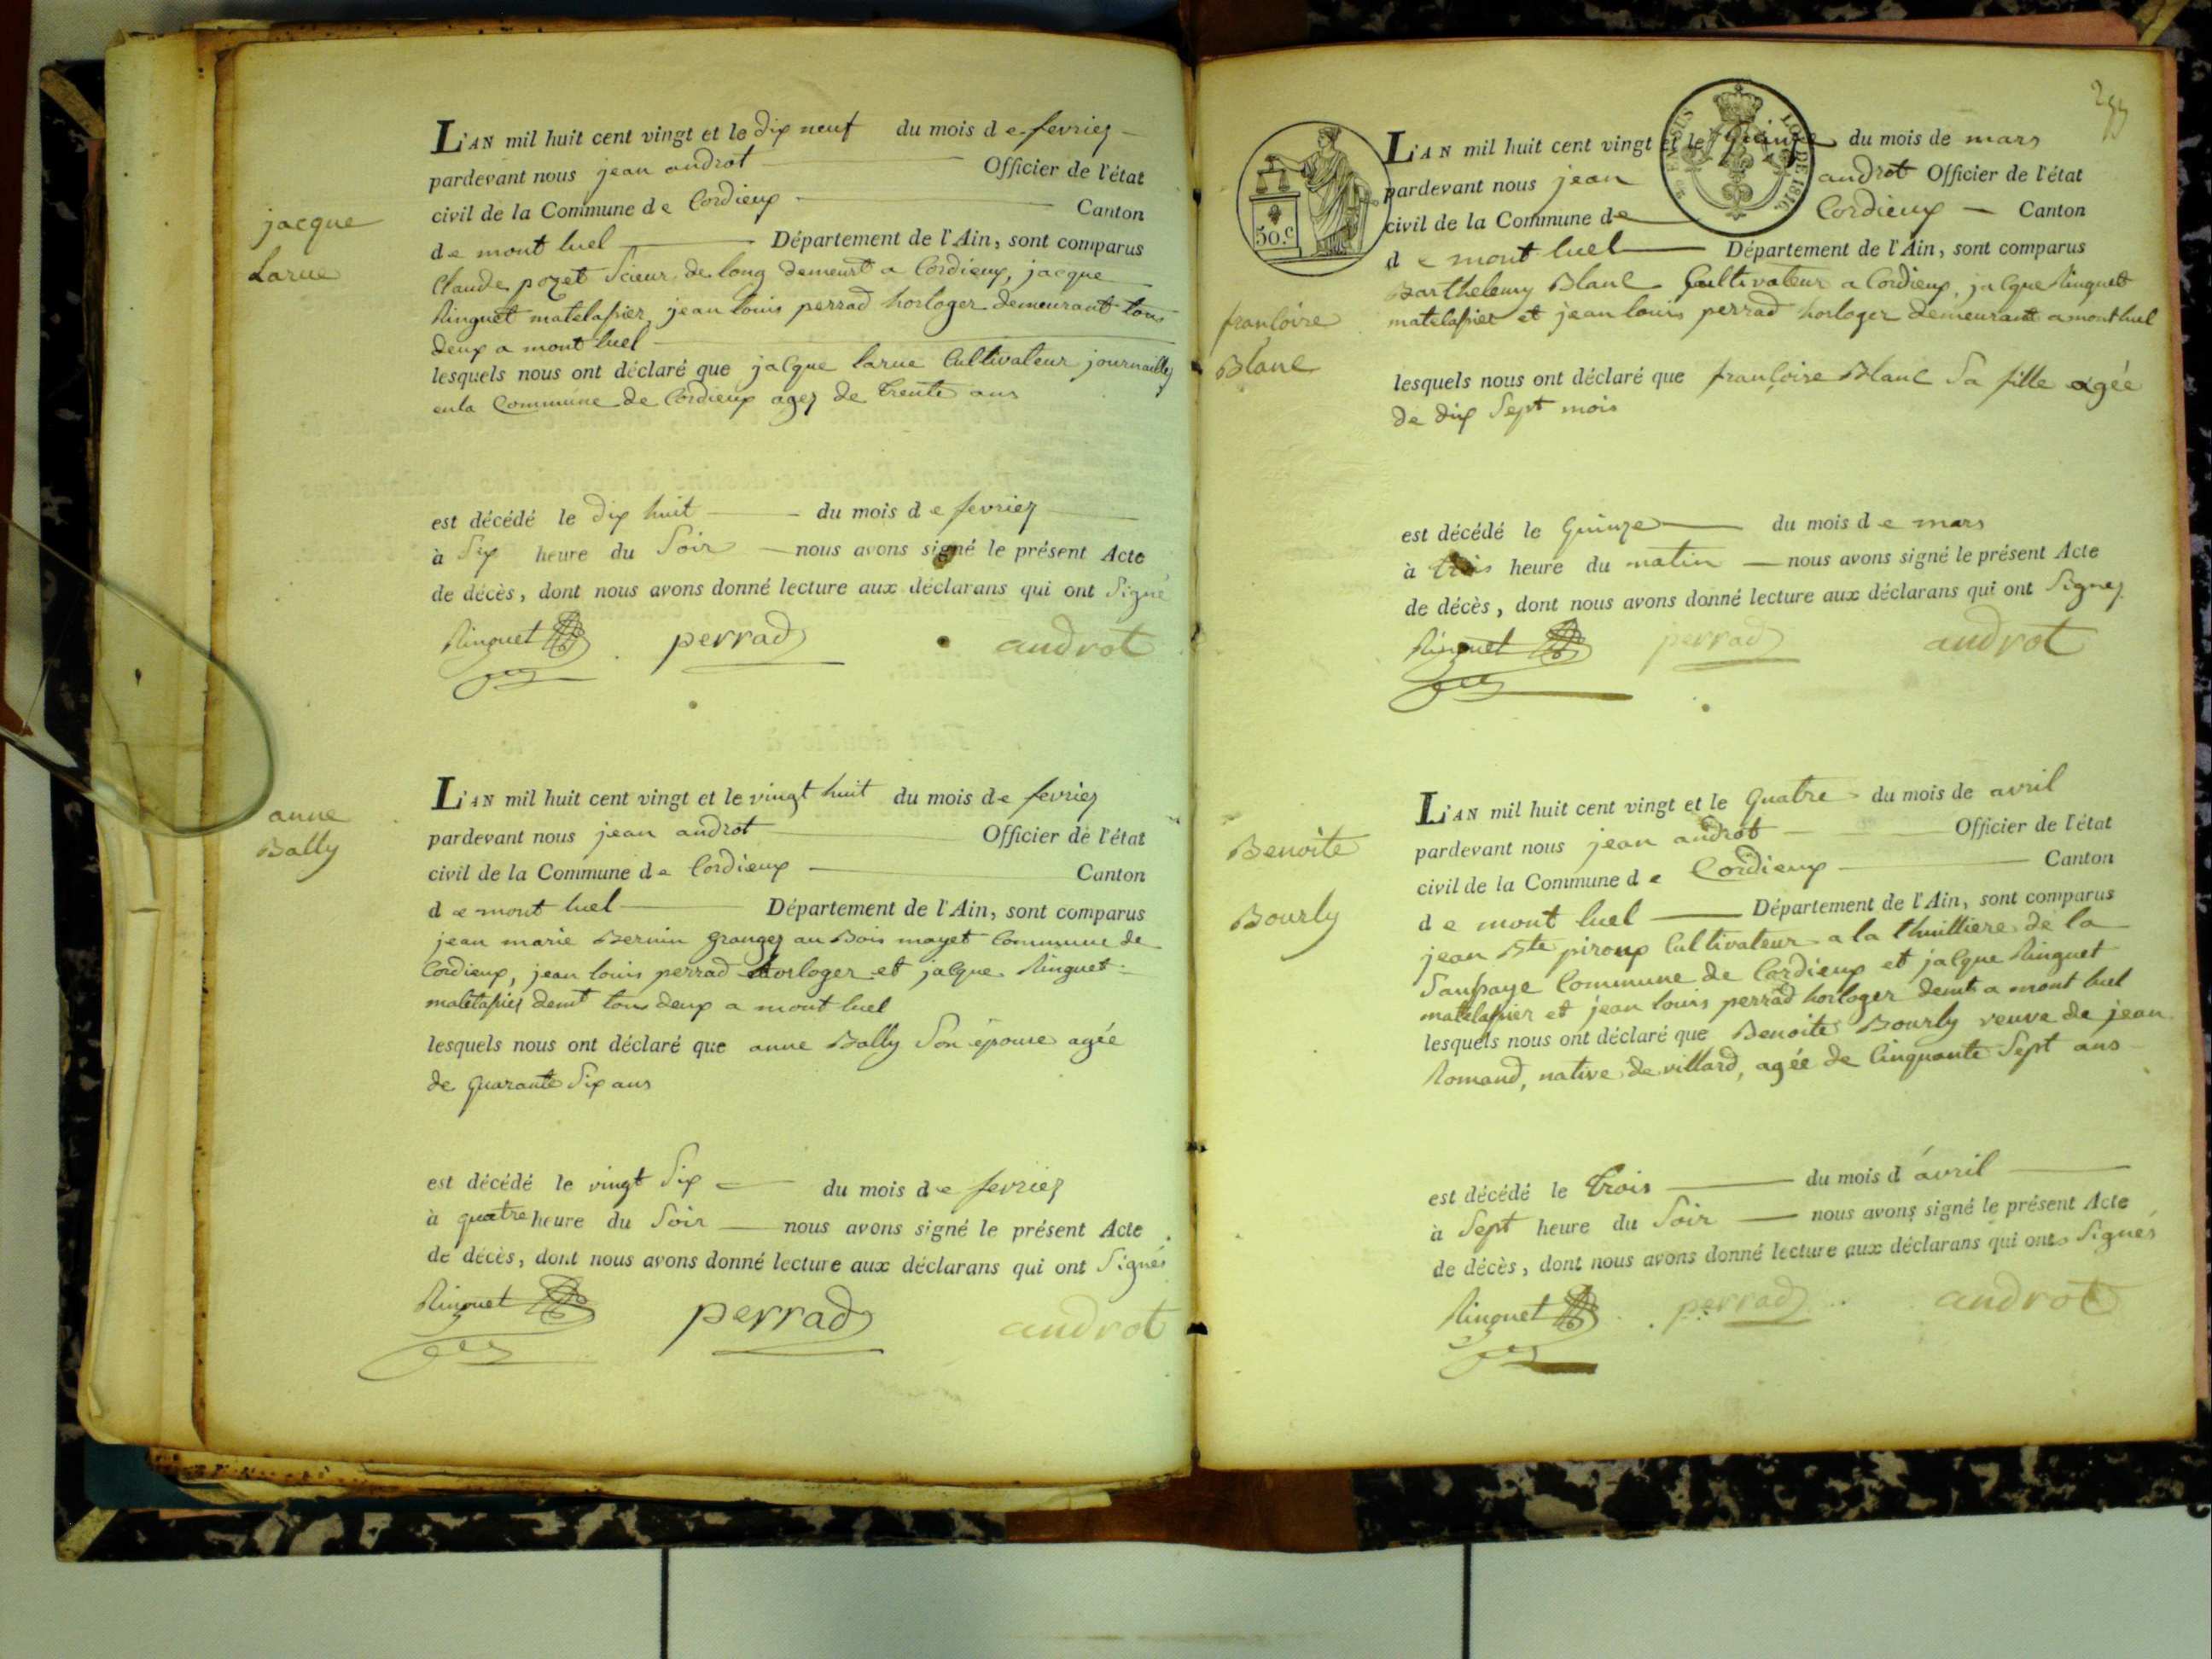 jacque
Larue
L'AN mil huit cent vingt et le dix neuf du mois de fevrier
pardevant nous jean androt Officier de l'état
civil de la Commune de Cordieux Canton
de mont luel Département de l'Ain, sont comparus
Claude pozet Scieur de long demeurt a Cordieux, jacque
Ringuet matelassier, jean louis perrad horloger demeurant tous
deux a mont luel
lesquels nous ont déclaré que jacque larue Cultivateur journaillier
en la Commune de Cordieux agez de trente ans
est décédé le dix huit du mois de fevrier
à Six heure du Soir nous avons signé le présent Acte
de décès, dont nous avons donné lecture aux déclarans qui ont Signé
Ringuet perrad androt
anne
Bally
L'AN mil huit cent vingt et le vingt huit du mois de fevrier
pardevant nous jean androt Officier de l'état
civil de la Commune de Cordieux Canton
de mont luel Département de l'Ain, sont comparus
jean marie Bernin granger au Bois mayet Commune de
Cordieux, jean louis perrad horloger et jacque Ringuet
matelassier demt tous deux a mont luel
lesquels nous ont déclaré que anne Bally Son épouse agée
de quarante Six ans
est décédé le vingt Six du mois de fevrier
à quatre heure du Soir nous avons signé le présent Acte
de décès, dont nous avons donné lecture aux déclarans qui ont Signés
Ringuet perrad androt
50.c
LOI DE 1816.
francoise
Blanc
L'AN mil huit cent vingt et le Quinze du mois de mars
pardevant nous jean androt Officier de l'état
civil de la Commune de Cordieux Canton
de mont luel Département de l'Ain, sont comparus
Barthelemy Blanc Cultivateur a Cordieux, jacque Ringuet
matelassier et jean louis perrad horloger demeurant a mont luel
lesquels nous ont déclaré que françoise Blanc Sa fille agée
de dix Sept mois
est décédé le Quinze du mois de mars
à trois heure du matin nous avons signé le présent Acte
de décès, dont nous avons donné lecture aux déclarans qui ont Signez
Ringuet perrad androt
Benoite
Bourly
L'AN mil huit cent vingt et le Quatre du mois de avril
pardevant nous jean androt Officier de l'état
civil de la Commune de Cordieux Canton
de mont luel Département de l'Ain, sont comparus
jean Bte piroux Cultivateur a la thuilliere de la
Saupaye Commune de Cordieux et jacque Ringuet
matelassier et jean louis perrad horloger demt a mont luel
lesquels nous ont déclaré que Benoite Bourly veuve de jean
Romand, native de villard, agée de Cinquante Sept ans
est décédé le trois du mois d'avril
à Sept heure du Soir nous avons signé le présent Acte
de décès, dont nous avons donné lecture aux déclarans qui ont Signés
Ringuet perrad androt